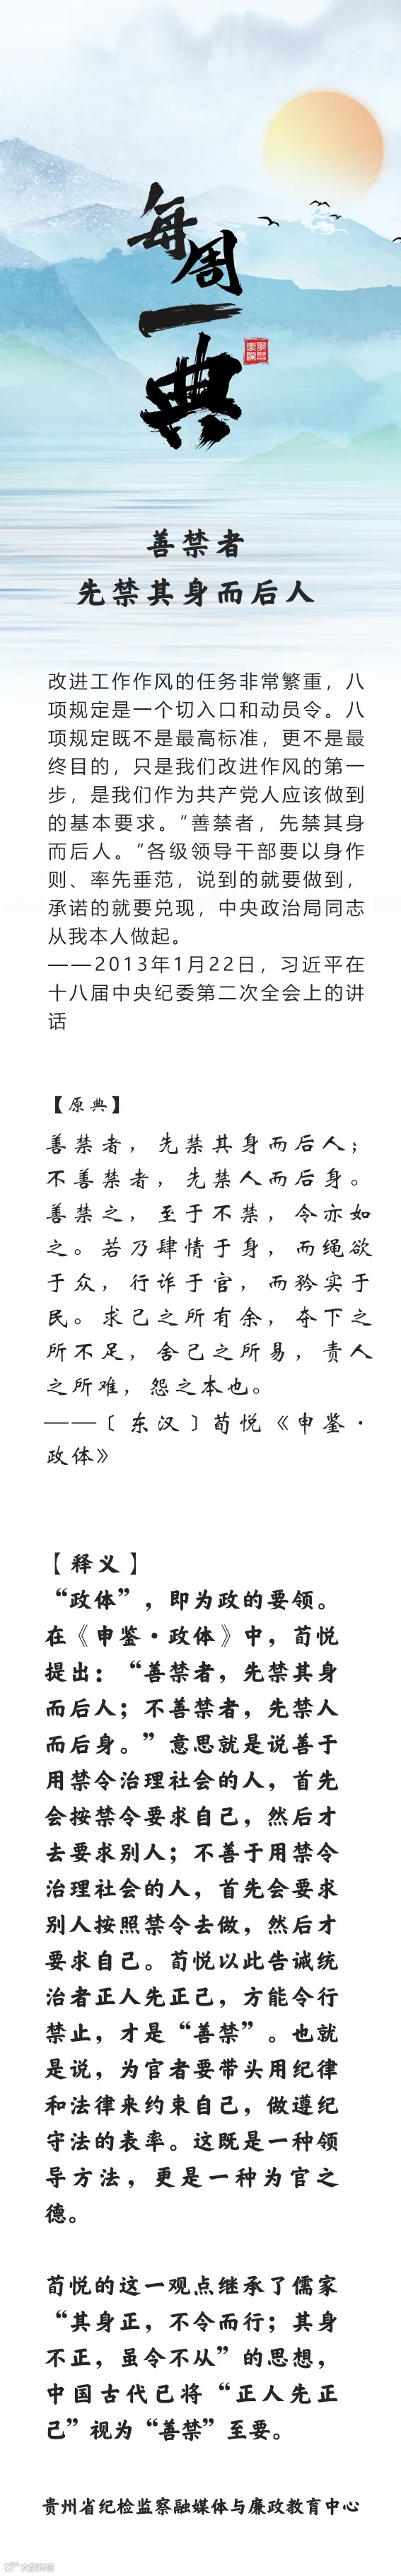 每周一典
善禁者
先禁其身而后人
改进工作作风的任务非常繁重，八
项规定是一个切入口和动员令。八
项规定既不是最高标准，更不是最
终目的，只是我们改进作风的第一
步，是我们作为共产党人应该做到
的基本要求。“善禁者，先禁其身
而后人。”各级领导干部要以身作
则、率先垂范，说到的就要做到，
承诺的就要兑现，中央政治局同志
从我本人做起。
——2013年1月22日，习近平在
十八届中央纪委第二次全会上的讲
话
【原典】
善禁者，先禁其身而后人；
不善禁者，先禁人而后身。
善禁之，至于不禁，令亦如
之。若乃肆情于身，而绳欲
于众，行诈于官，而矜实于
民。求己之所有余，夺下之
所不足，舍己之所易，责人
之所难，怨之本也。
——〔东汉〕荀悦《申鉴·
政体》
【释义】
“政体”，即为政的要领。
在《申鉴·政体》中，荀悦
提出：“善禁者，先禁其身
而后人；不善禁者，先禁人
而后身。”意思就是说善于
用禁令治理社会的人，首先
会按禁令要求自己，然后才
去要求别人；不善于用禁令
治理社会的人，首先会要求
别人按照禁令去做，然后才
要求自己。荀悦以此告诫统
治者正人先正己，方能令行
禁止，才是“善禁”。也就
是说，为官者要带头用纪律
和法律来约束自己，做遵纪
守法的表率。这既是一种领
导方法，更是一种为官之
德。
荀悦的这一观点继承了儒家
“其身正，不令而行；其身
不正，虽令不从”的思想，
中国古代已将“正人先正
己”视为“善禁”至要。
贵州省纪检监察融媒体与廉政教育中心